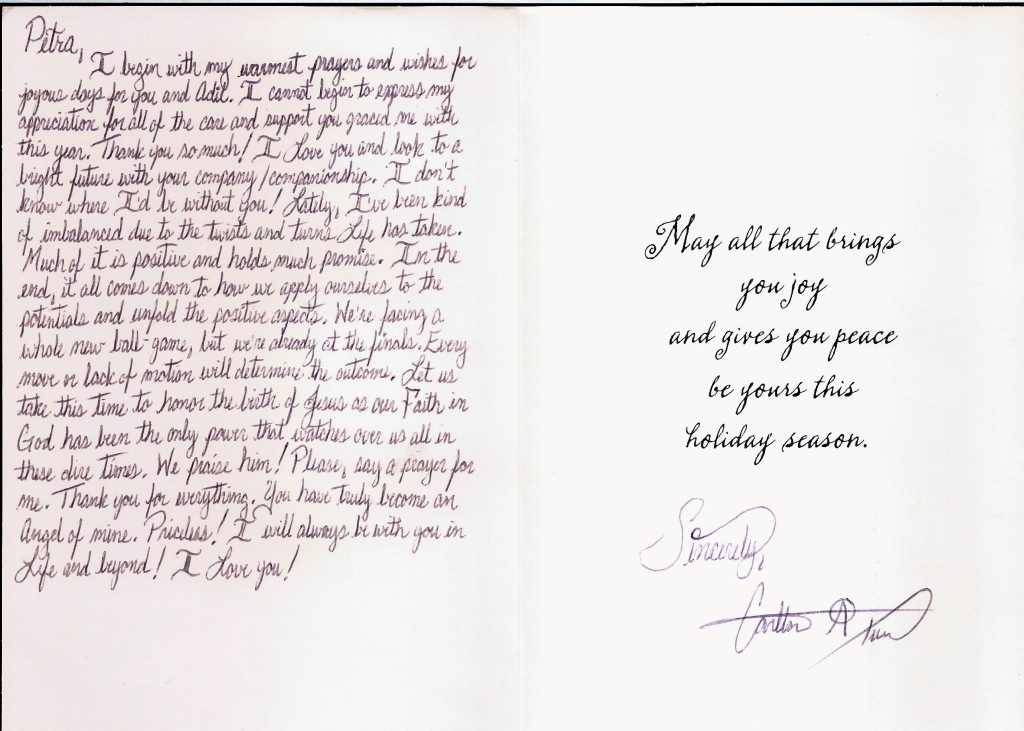 Petra,
I begin with my warmest prayers and wishes for
joyous days for you and Adil. I cannot begin to express my
appreciation for all of the care and support you graced me with
this year. Thank you so much! I Love you and look to a
bright future with your company/companionship. I don't
know where I'd be without you! Lately, I've been kind
of imbalanced due to the twists and turns Life has taken.
Much of it is positive and holds much promise. In the
end, it all comes down to how we apply ourselves to the
potentials and unfold the positive aspects. We're facing a
whole new ball-game, but we're already at the finals. Every
move or lack of motion will determine the outcome. Let us
take this time to honor the birth of Jesus as our Faith in
God has been the only power that watches over us all in
these dire times. We praise him! Please, say a prayer for
me. Thank you for everything. You have truly become an
Angel of mine. Priceless! I will always be with you in
Life and beyond! I Love you!
May all that brings
you joy
and gives you peace
be yours this
holiday season.
Sincerely,
Carlton A